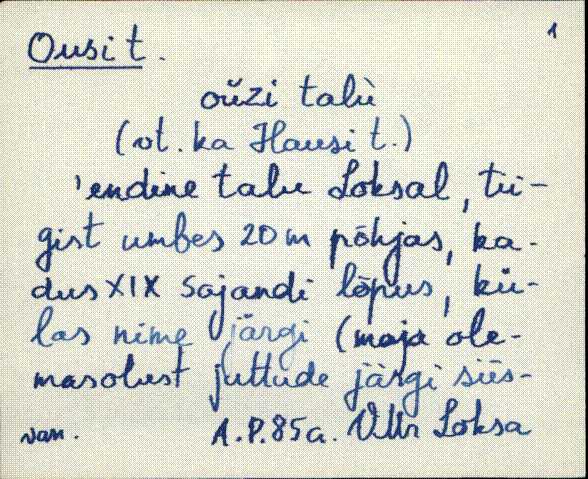 1
Ousi t.
oŭzi talù
(vt. ka Hausi t.)
'endine talu Loksal, tii-
gist umbes 20 m põhjas, ka-
dus XIX sajandi lõpus, kü-
las nime järgi (maja ole-
masolust juttude järgi siis-
van. A.P. 85a. VMr Loksa